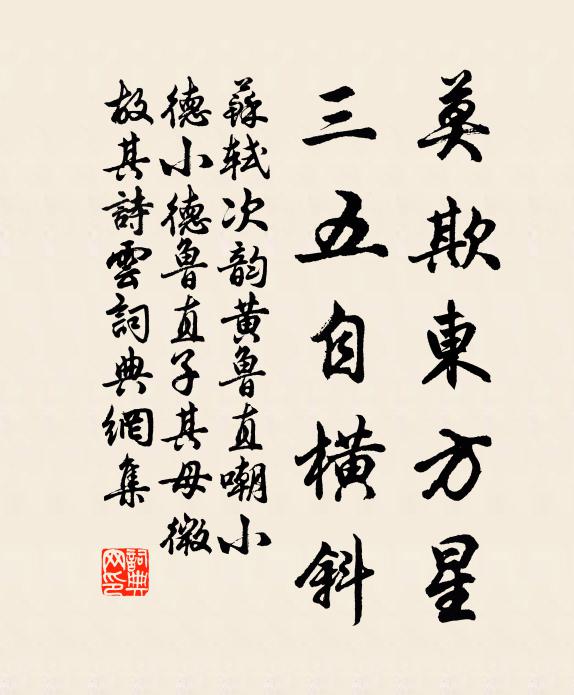 莫欺東方星
三五自橫斜
蘇軾次韵黃魯直嘲小
德小德魯直子其母微
故其詩雲詞典網集
詞典
网印